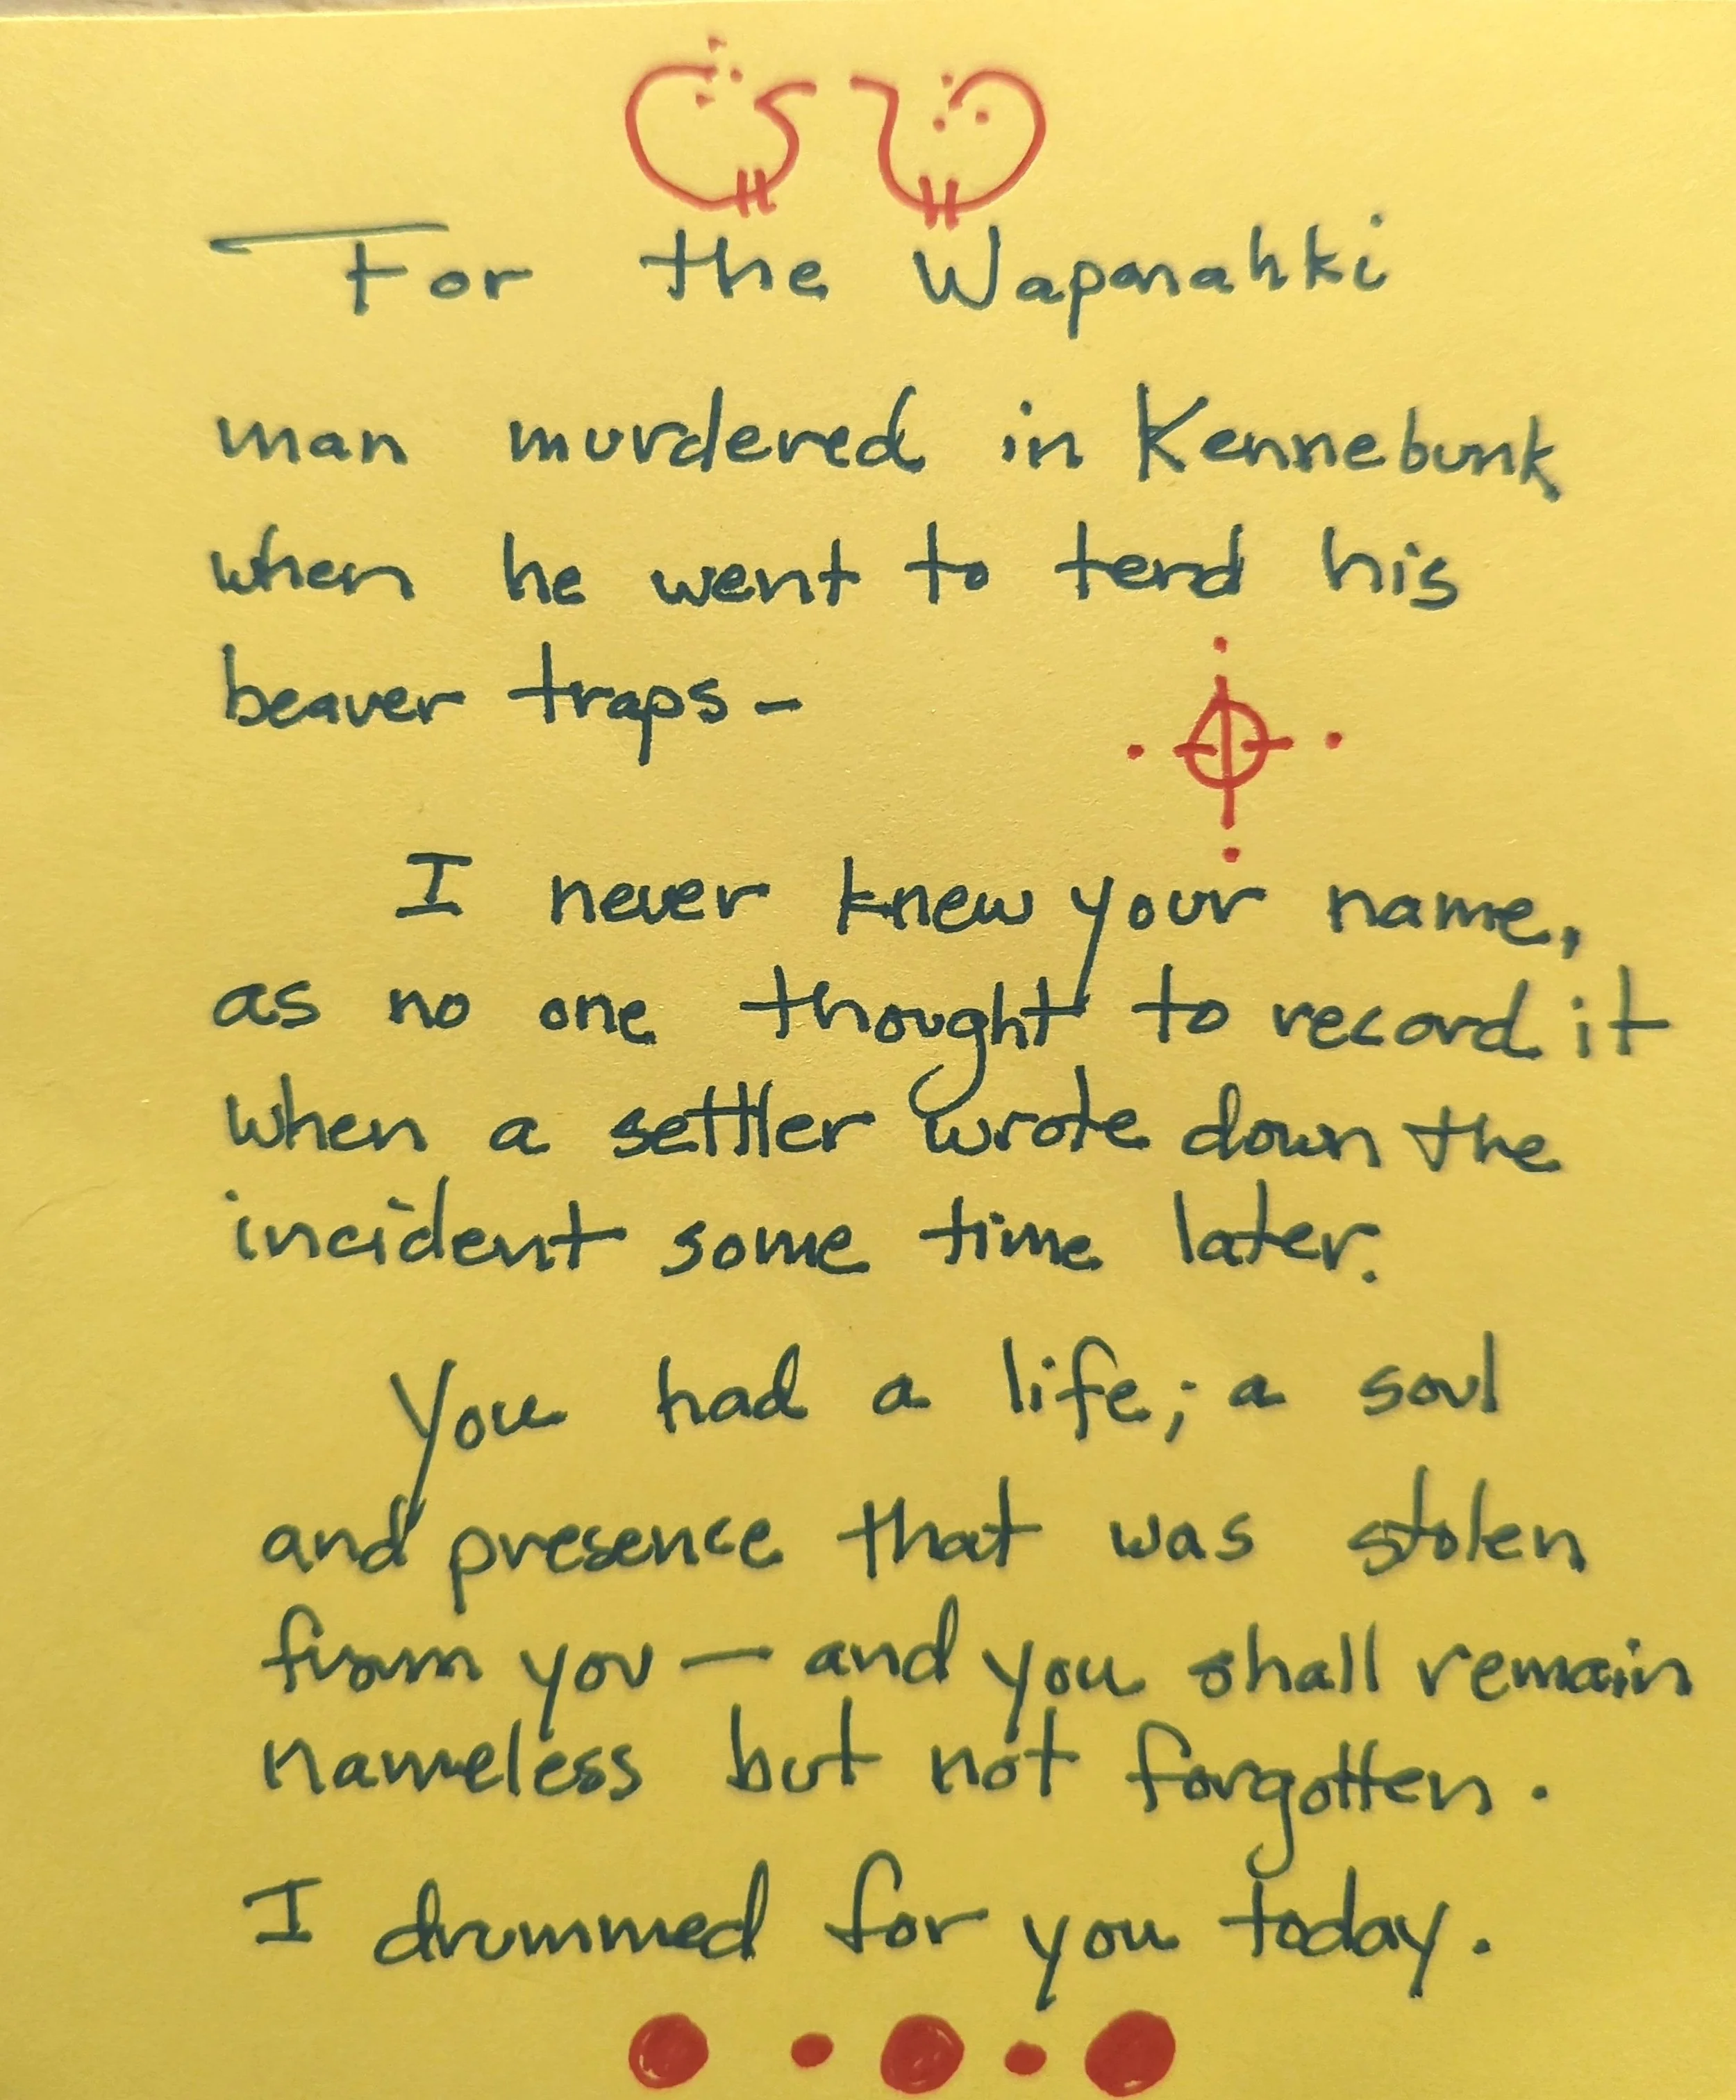 For the Wapanahki
man murdered in Kennebunk
when he went to tend his
beaver traps-
I never knew your name,
as no one thought to record it
when a settler wrote down the
incident some time later.
You had a life; a soul
and presence that was stolen
from you — and you shall remain
nameless but not forgotten.
I drummed for you today.